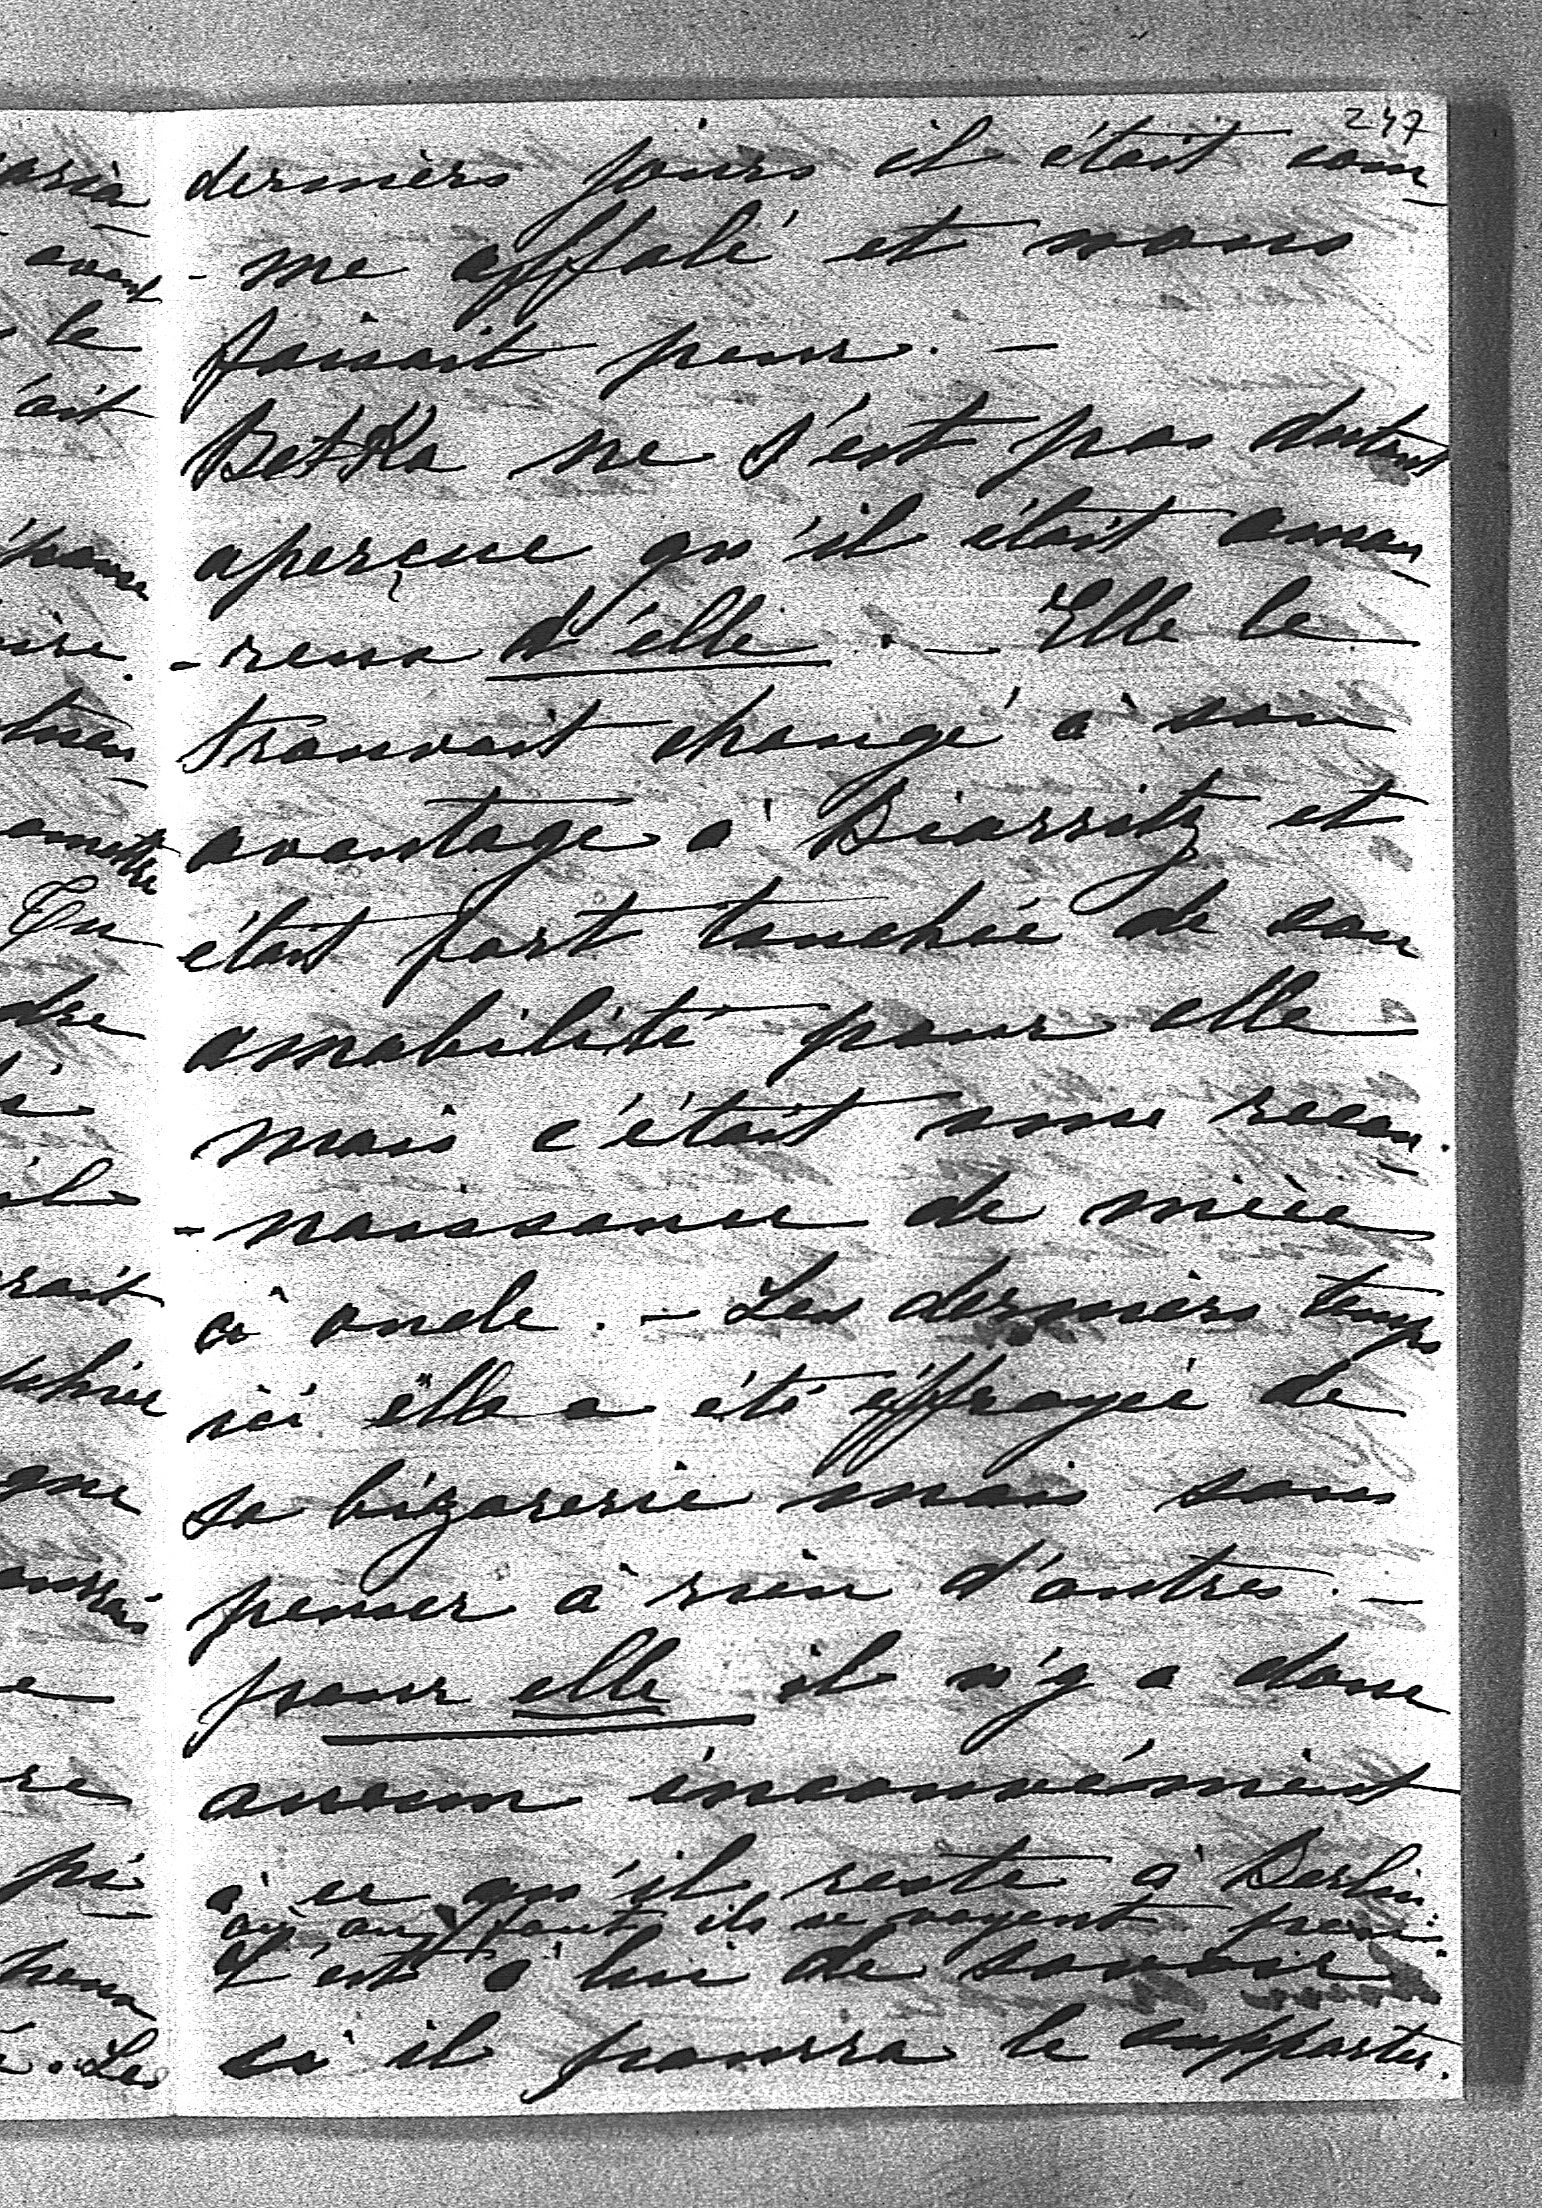 247
derniers jours il était com
- me affalé et nous
faisait peur. —
Betka ne s'est pas
aperçue qu'il était amou
- reux d'elle. — Elle le
trouvait changé à son
avantage à Biarritz et
était fort touchée de son
amabilité pour elle
mais c'était une recon
- naissance de nièce
à oncle. — Les derniers temps
ici elle a été éffrayée de
sa bizarerie mais sans
penser à rien d'autres. —
pour elle il n'y a donc
aucun inconvénient
à ce qu'il reste à Berlin
où ils se voyent peu.
C'est à lui de savoir
si il pourra le supporter.